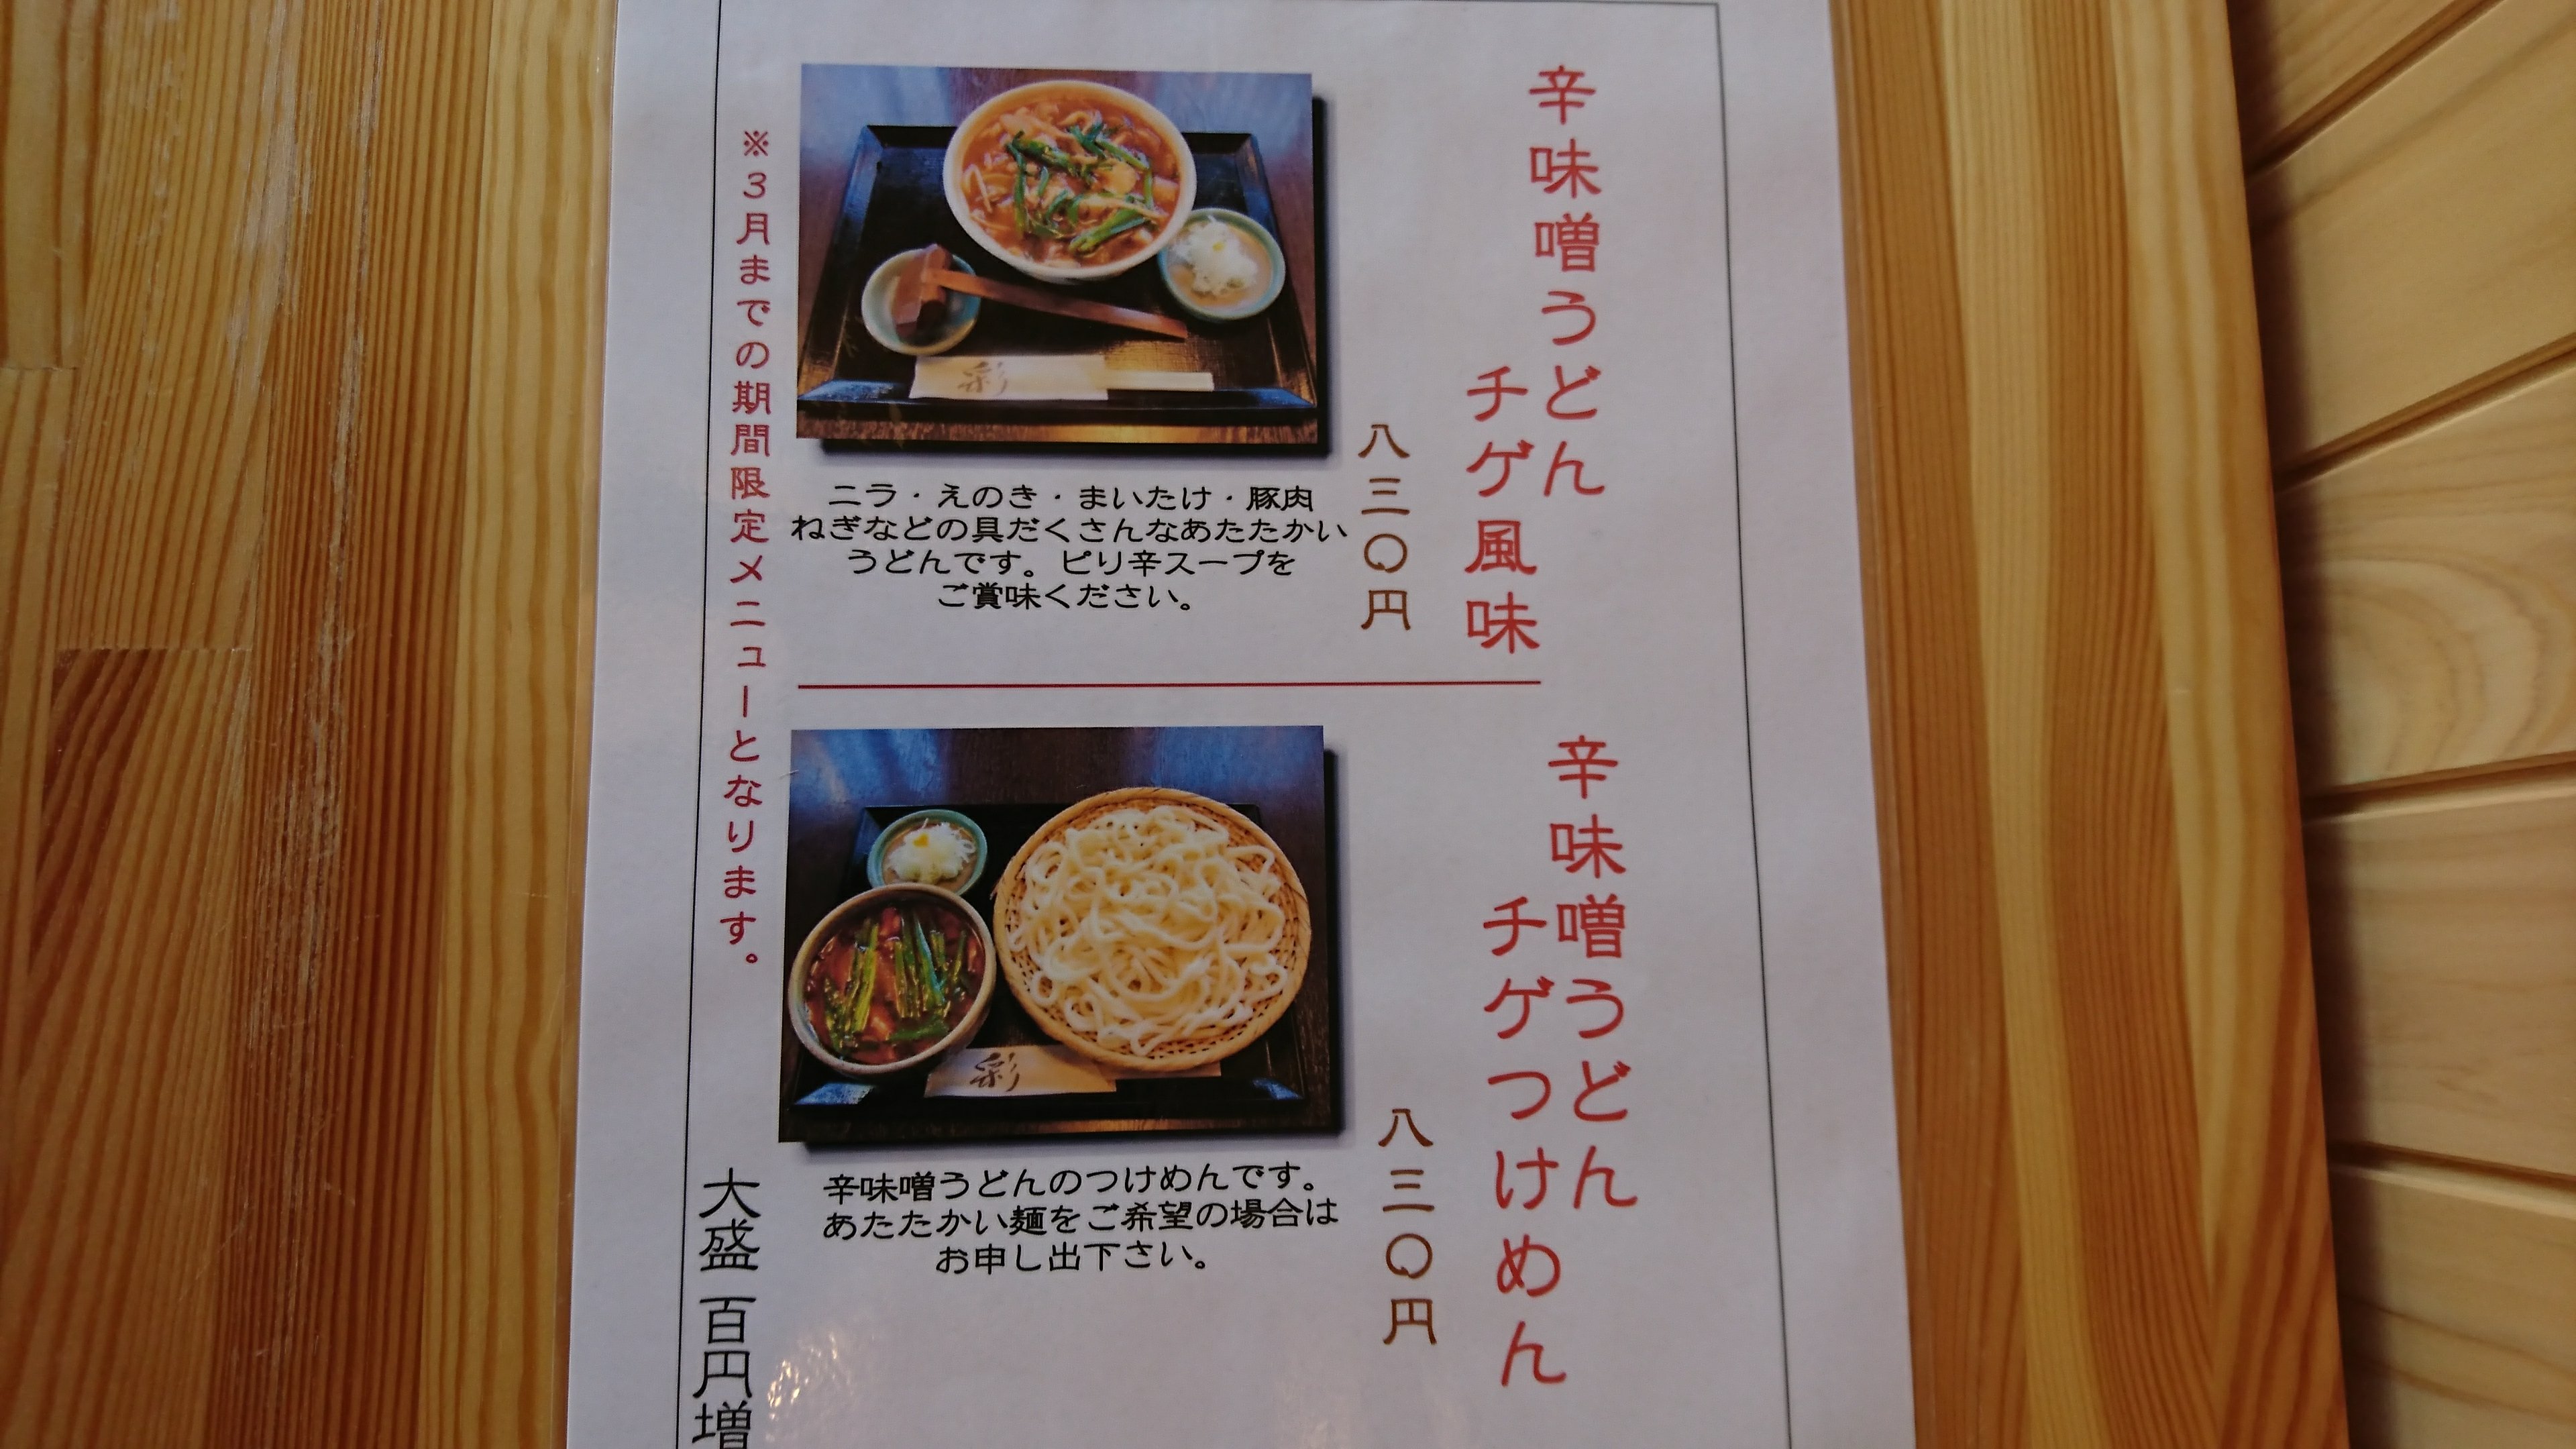 辛味噌うどん
チゲ風味
八三〇円
彩
ニラ・えのき・まいたけ・豚肉
ねぎなどの具だくさんなあたたかい
うどんです。ピリ辛スープを
ご賞味ください。
辛味噌うどん
チゲつけめん
八三〇円
彩
辛味噌うどんのつけめんです。
あたたかい麺をご希望の場合は
お申し出下さい。
※3月までの期間限定メニューとなります。
大盛 百円増